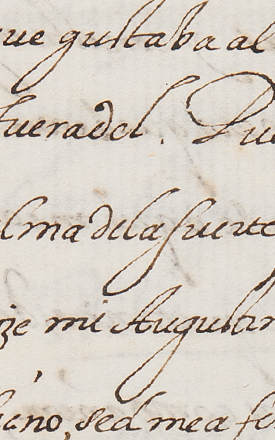 que gustaba al
fuera del. Pue
alma dela suerte
ize mi Augustin
no, sed mea